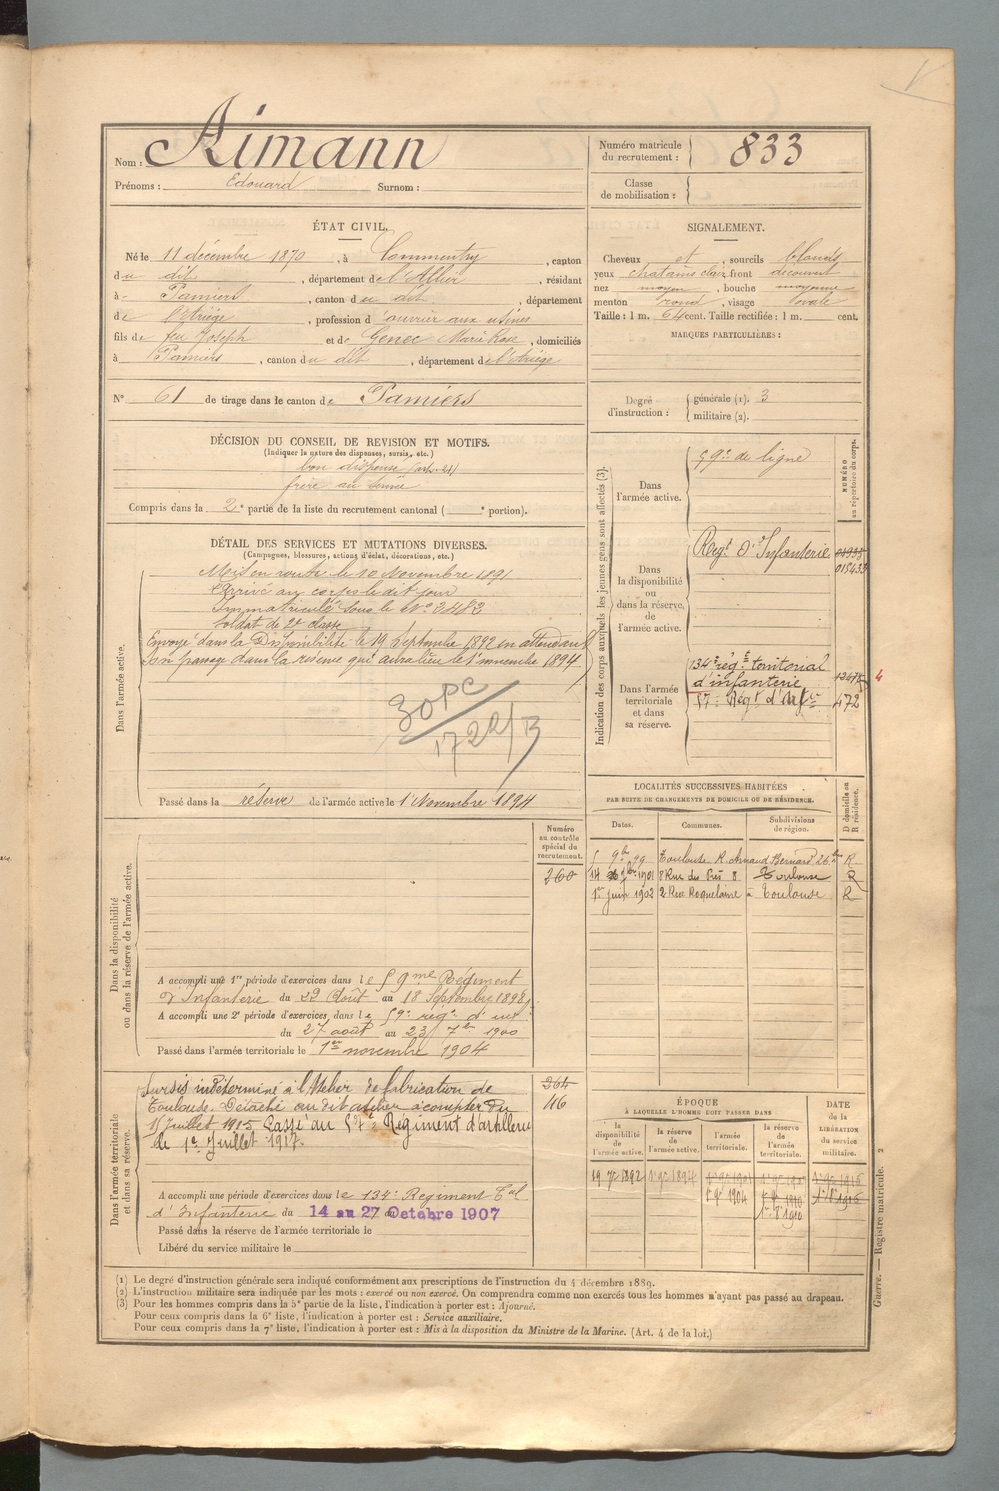 Nom : Aimann
Prénoms : Edouard Surnom :
Numéro matricule
du recrutement : 833
Classe
de mobilisation :
ÉTAT CIVIL.
Né le 11 décembre 1870, à Commentry, canton
du dit, département de l'Allier, résidant
à Pamiers, canton du dit, département
de l'Ariège, profession d'ouvrier aux usines
fils de feu Joseph et de Genec Marie Rose, domiciliés
à Pamiers, canton du dit, département de l'Ariège
N° 61 de tirage dans le canton de Pamiers
SIGNALEMENT.
Cheveux et, sourcils blonds
yeux chatains clair front découvert
nez moyen, bouche moyenne
menton rond, visage ovale
Taille : 1 m. 64 cent. Taille rectifiée : 1 m. cent.
MARQUES PARTICULIÈRES :
Degré
d'instruction :
générale (1). 3
militaire (2).
DÉCISION DU CONSEIL DE REVISION ET MOTIFS.
(Indiquer la nature des dispenses, sursis, etc.)
bon dispensé (art. 21)
frère au service
Compris dans la 2e partie de la liste du recrutement cantonal ( e portion).
DÉTAIL DES SERVICES ET MUTATIONS DIVERSES.
(Campagnes, blessures, actions d'éclat, décorations, etc.)
Dans l'armée active.
Mis en route le 10 Novembre 1891
Arrivé au corps le dit jour
Immatriculé sous le N° 3482
Soldat de 2e classe
Envoyé dans la Disponibilité le 19 Septembre 1892 en attendant
son passage dans la réserve qui aura lieu le 1er novembre 1894
Passé dans la réserve de l'armée active le 1er Novembre 1894
Indication des corps auxquels les jeunes gens sont affectés (3).
NUMÉRO
au répertoire du corps.
Dans
l'armée active.
59e de ligne
Dans
la disponibilité
ou
dans la réserve
de
l'armée active.
Regt d'Infanterie
015433
Dans l'armée
territoriale
et dans
sa réserve.
134e régt territorial
d'infanterie
57e Régt d'Artie
472
4
LOCALITÉS SUCCESSIVES HABITÉES
PAR SUITE DE CHANGEMENTS DE DOMICILE OU DE RÉSIDENCE.
D domicile ou
R résidence.
Dates. Communes. Subdivisions
de région.
5 9bre 99 Toulouse R. Arnaud Bernard 26 R
14 1901 8 Rue des 8 Toulouse R
1er juin 1902 2 Rue Roquelaine à Toulouse R
Numéro
au contrôle
spécial du
recrutement.
260
Dans la disponibilité
ou dans la réserve de l'armée active.
A accompli une 1re période d'exercices dans le 59me Régiment
d'Infanterie du 22 Août au 18 Septembre 1898
A accompli une 2e période d'exercices, dans le 59e régt d'inf
du 27 août au 23 7bre 1900
Passé dans l'armée territoriale le 1er novembre 1904
Dans l'armée territoriale
et dans sa réserve.
Sursis indéterminé à l'Atelier de fabrication de
Toulouse. Détaché au dit atelier à compter du
15 Juillet 1915. Passé au 57e Régiment d'artillerie
le 1er Juillet 1917.
264
46
A accompli une période d'exercices dans le 134e Régiment Tal
d'Infanterie du 14 au 27 Octobre 1907
Passé dans la réserve de l'armée territoriale le
Libéré du service militaire le
ÉPOQUE
À LAQUELLE L'HOMME DOIT PASSER DANS
DATE
de la
LIBÉRATION
du service
militaire.
la
disponibilité
de l'armée
active.
la réserve
de
l'armée active.
l'armée
territoriale.
la réserve
de
l'armée
territoriale.
19 7e 1892 1er 9e 1894
1er 9e 1904 1er 9e 1910
(1) Le degré d'instruction générale sera indiqué conformément aux prescriptions de l'instruction du 4 décembre 1889.
(2) L'instruction militaire sera indiquée par les mots : exercé ou non exercé. On comprendra comme non exercés tous les hommes n'ayant pas passé au drapeau.
(3) Pour les hommes compris dans la 5e partie de la liste, l'indication à porter est : Ajourné.
Pour ceux compris dans la 6e liste, l'indication à porter est : Service auxiliaire.
Pour ceux compris dans la 7e liste, l'indication à porter est : Mis à la disposition du Ministre de la Marine. (Art. 4 de la loi.)
Guerre. — Registre matricule. 2